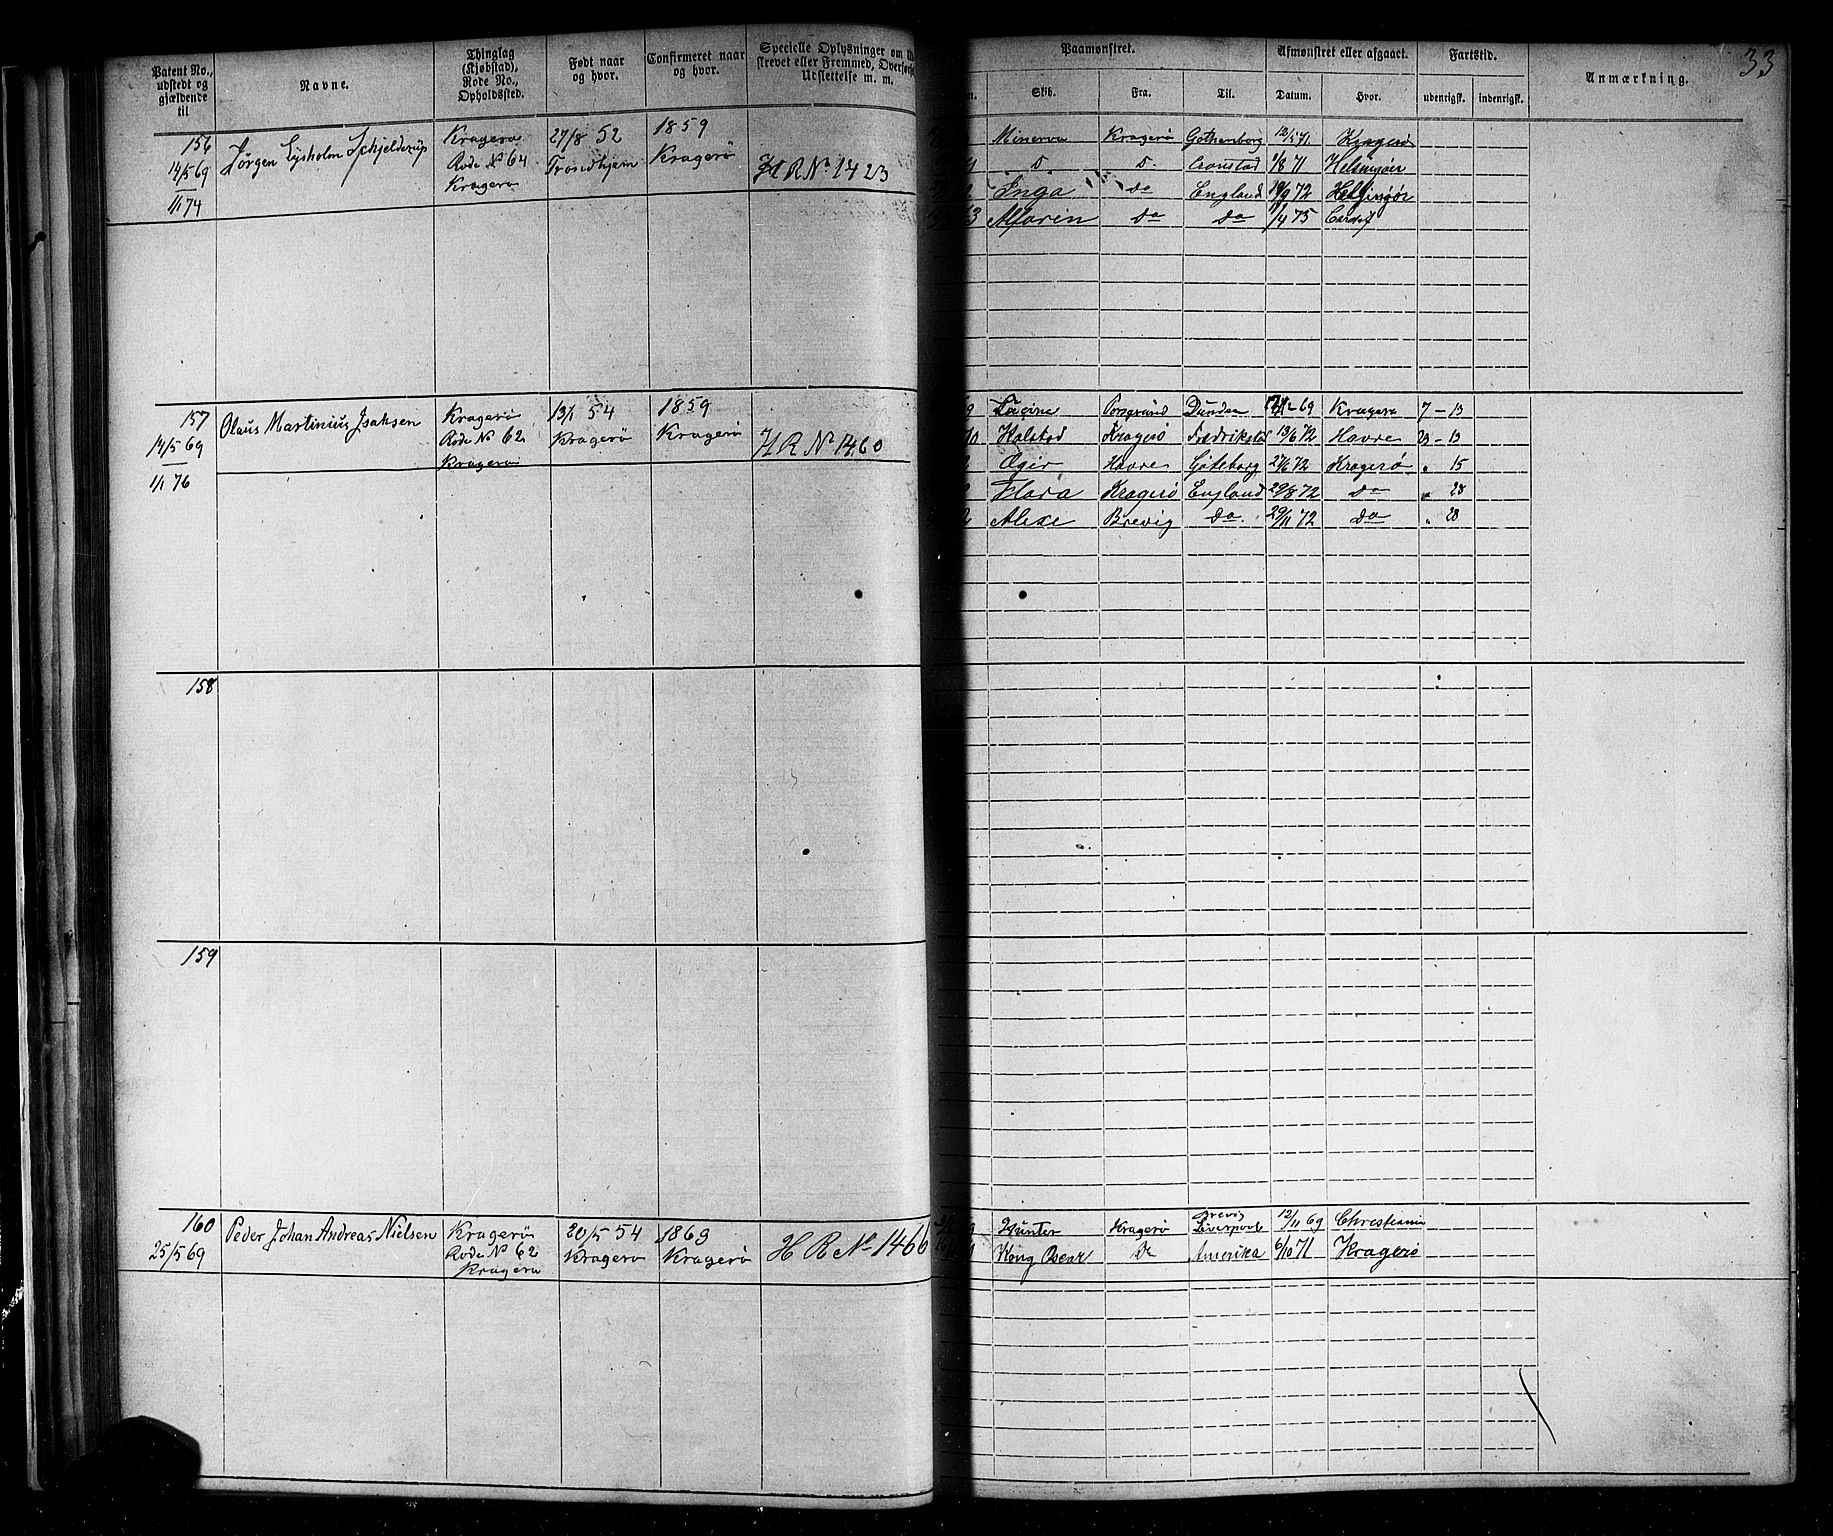 33
Patent No., udstedt og gjældende til
Navne.
Thinglag (Kjøbstad), Rode No., Opholdssted.
Født naar og hvor.
Confirmeret naar og hvor.
Specielle Oplysninger om
strevet eller Fremmed, Overført
Udslettelse m. m.
Paamønstret.
Skib.
Fra.
Til.
Afmønstret eller afgaaet.
Datum.
Hvor.
Fartstid.
udenrigsk.
indenrigsk.
Anmærkning.
156
14/5 69
1/1 74
Jørgen Eysholm Schjelderup
Kragerø
Rode № 64
Kragerø
27/8 52
Trondhjem
1859
Kragerø
H R № 1423
Minerva Kragerø Gothenborg 12/5 71. Kragerø
D. D. Cronstad 1/8 71 Helsingøer
Inga Do England 19/9 72 Helsingør
Marin Do Do 1/4 75 Cardif
157
14/5 69
1/1 76
Olaus Martinius Isaksen
Kragerø
Rode № 62
Kragerø
13/1 54
Kragerø
1859
Kragerø
H R № 1460
Porsgrund Dundee 69 Kragerø 7 - 13
Halstad Kragerø Fredrikstad 13/6 72 Havre 23 - 13
Ægir Havre Göteborg 27/6 72 Kragerø " 15
Flora Kragerø England 29/8 72 Do " 28
Alexe Brevig Do. 29/11 72 Do " 28
158
159
160
25/5 69
Peder Johan Andreas Nielsen
Kragerø
Rode № 62
Kragerø
20/5 54
Kragerø
1869
Kragerø
H R № 1466
Hunter Kragerø Brevig Liverpool 12/11 69 Christiania
Kong Oscar Do Amerika 6/10 71 Kragerø